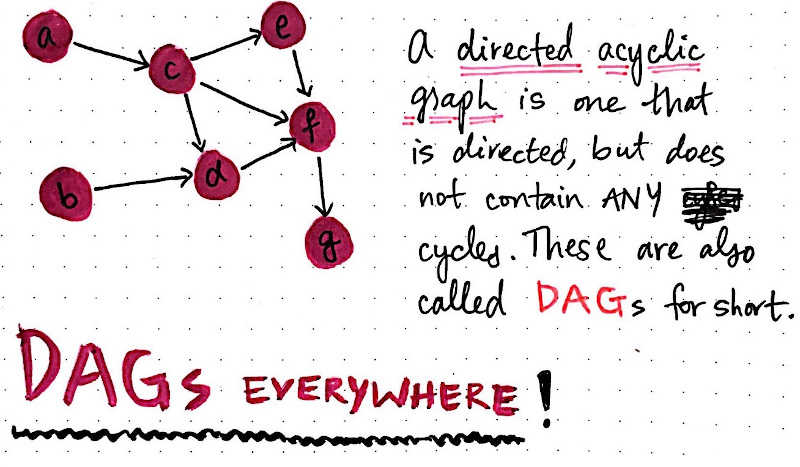 a
e
c
f
b
d
g
A directed acyclic
graph is one that
is directed, but does
not contain ANY
cycles. These are also
called DAGs for short.
DAGs EVERYWHERE!